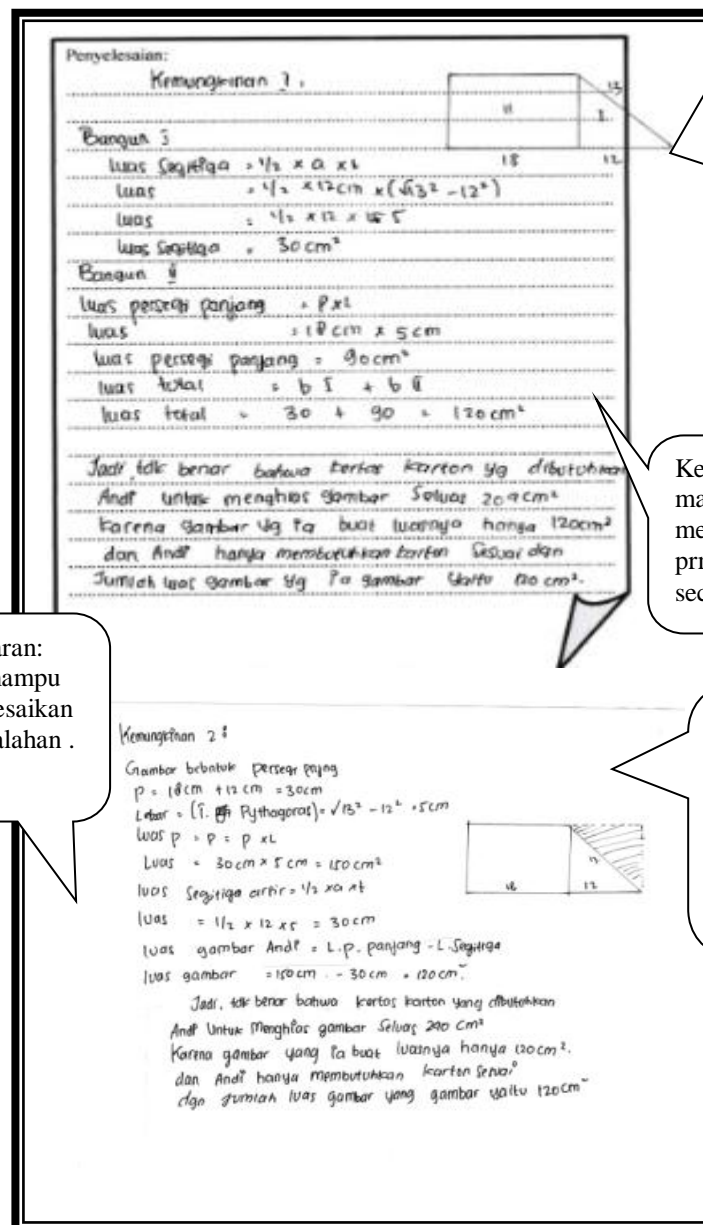 Penyelesaian:
Kemungkinan 1.
13
II
I
18
12
Bangun I
luas segitiga = 1/2 x a x t
luas = 1/2 x 12 cm x (√13² - 12²)
luas = 1/2 x 12 x 5
luas segitiga = 30 cm²
Bangun II
luas persegi panjang = p x l
luas = 18 cm x 5 cm
luas persegi panjang = 90 cm²
luas total = b I + b II
luas total = 30 + 90 = 120 cm²
Jadi, tdk benar bahwa kertas karton yg dibutuhkan
Andi untuk menghias gambar seluas
karena gambar yg ia buat luasnya hanya 120 cm²
dan Andi hanya membutuhkan karton sesuai dgn
Jumlah luas gambar yg ia gambar yaitu 120 cm².
Ke
ma
me
pri
sec
aran:
nampu
esaikan
alahan .
Kemungkinan 2:
Gambar bebntuk persegi pajng
p = 18 cm + 12 cm = 30 cm
Lebar = (T. Pythagoras) = √13² - 12² = 5 cm
Luas p = p = p x L
Luas = 30 cm x 5 cm = 150 cm²
18
12
luas segitiga arsir = 1/2 x a x t
luas = 1/2 x 12 x 5 = 30 cm
luas gambar Andi = L.p. panjang - L. segitiga
luas gambar = 150 cm - 30 cm = 120 cm²
Jadi, tdk benar bahwa kertas karton yang dibutuhkan
Andi untuk menghias gambar seluas 240 cm²
Karena gambar yang ia buat luasnya hanya 120 cm².
dan Andi hanya membutuhkan karton sesuai
dgn jumlah luas gambar yang gambar yaitu 120 cm²